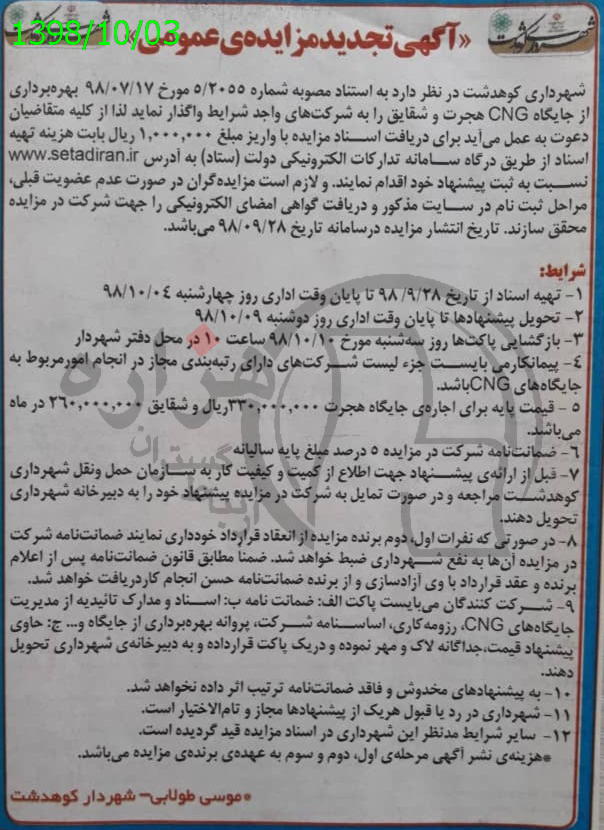 1398/10/03
«آگهی تجدید مزایده‌ی عمومی»
شهرداری کوهدشت در نظر دارد به استناد مصوبه شماره ۵/۲۰۵۵ مورخ ۹۸/۰۷/۱۷ بهره‌برداری
از جایگاه CNG هجرت و شقایق را به شرکت‌های واجد شرایط واگذار نماید لذا از کلیه متقاضیان
دعوت به عمل می‌آید برای دریافت اسناد مزایده با واریز مبلغ ۱,۰۰۰,۰۰۰ ریال بابت هزینه تهیه
اسناد از طریق درگاه سامانه تدارکات الکترونیکی دولت (ستاد) به آدرس www.setadiran.ir
نسبت به ثبت پیشنهاد خود اقدام نمایند. و لازم است مزایده‌گران در صورت عدم عضویت قبلی،
مراحل ثبت نام در سایت مذکور و دریافت گواهی امضای الکترونیکی را جهت شرکت در مزایده
محقق سازند. تاریخ انتشار مزایده درسامانه تاریخ ۹۸/۰۹/۲۸ می‌باشد.
شرایط:
۱- تهیه اسناد از تاریخ ۹۸/۹/۲۸ تا پایان وقت اداری روز چهارشنبه ۹۸/۱۰/۰۴
۲- تحویل پیشنهادها تا پایان وقت اداری روز دوشنبه ۹۸/۱۰/۰۹
۳- بازگشایی پاکت‌ها روز سه‌شنبه مورخ ۹۸/۱۰/۱۰ ساعت ۱۰ در محل دفتر شهردار
۴- پیمانکارمی بایست جزء لیست شرکت‌های دارای رتبه‌بندی مجاز در انجام امورمربوط به
جایگاه‌های CNGباشد.
۵ - قیمت پایه برای اجاره‌ی جایگاه هجرت ۳۳۰,۰۰۰,۰۰۰ریال و شقایق ۲۶۰,۰۰۰,۰۰۰ در ماه
می‌باشد.
۶- ضمانت‌نامه شرکت در مزایده ۵ درصد مبلغ پایه سالیانه
۷- قبل از ارائه‌ی پیشنهاد جهت اطلاع از کمیت و کیفیت کار به سازمان حمل ونقل شهرداری
کوهدشت مراجعه و در صورت تمایل به شرکت در مزایده پیشنهاد خود را به دبیرخانه شهرداری
تحویل دهند.
۸- در صورتی که نفرات اول، دوم برنده مزایده از انعقاد قرارداد خودداری نمایند ضمانت‌نامه شرکت
در مزایده آن‌ها به نفع شهرداری ضبط خواهد شد. ضمناً مطابق قانون ضمانت‌نامه پس از اعلام
برنده و عقد قرارداد با وی آزادسازی و از برنده ضمانت‌نامه حسن انجام کاردریافت خواهد شد.
۹- شرکت کنندگان می‌بایست پاکت الف: ضمانت نامه ب: اسناد و مدارک تائیدیه از مدیریت
جایگاه‌های CNG، رزومه‌کاری، اساسنامه شرکت، پروانه بهره‌برداری از جایگاه و... ج: حاوی
پیشنهاد قیمت،جداگانه لاک و مهر نموده و دریک پاکت قرارداده و به دبیرخانه‌ی شهرداری تحویل
دهند.
۱۰- به پیشنهادهای مخدوش و فاقد ضمانت‌نامه ترتیب اثر داده نخواهد شد.
۱۱- شهرداری در رد یا قبول هریک از پیشنهادها مجاز و تام‌الاختیار است.
۱۲- سایر شرایط مدنظر این شهرداری در اسناد مزایده قید گردیده است.
*هزینه‌ی نشر آگهی مرحله‌ی اول، دوم و سوم به عهده‌ی برنده‌ی مزایده می‌باشد.
*موسی طولابی- شهردار کوهدشت